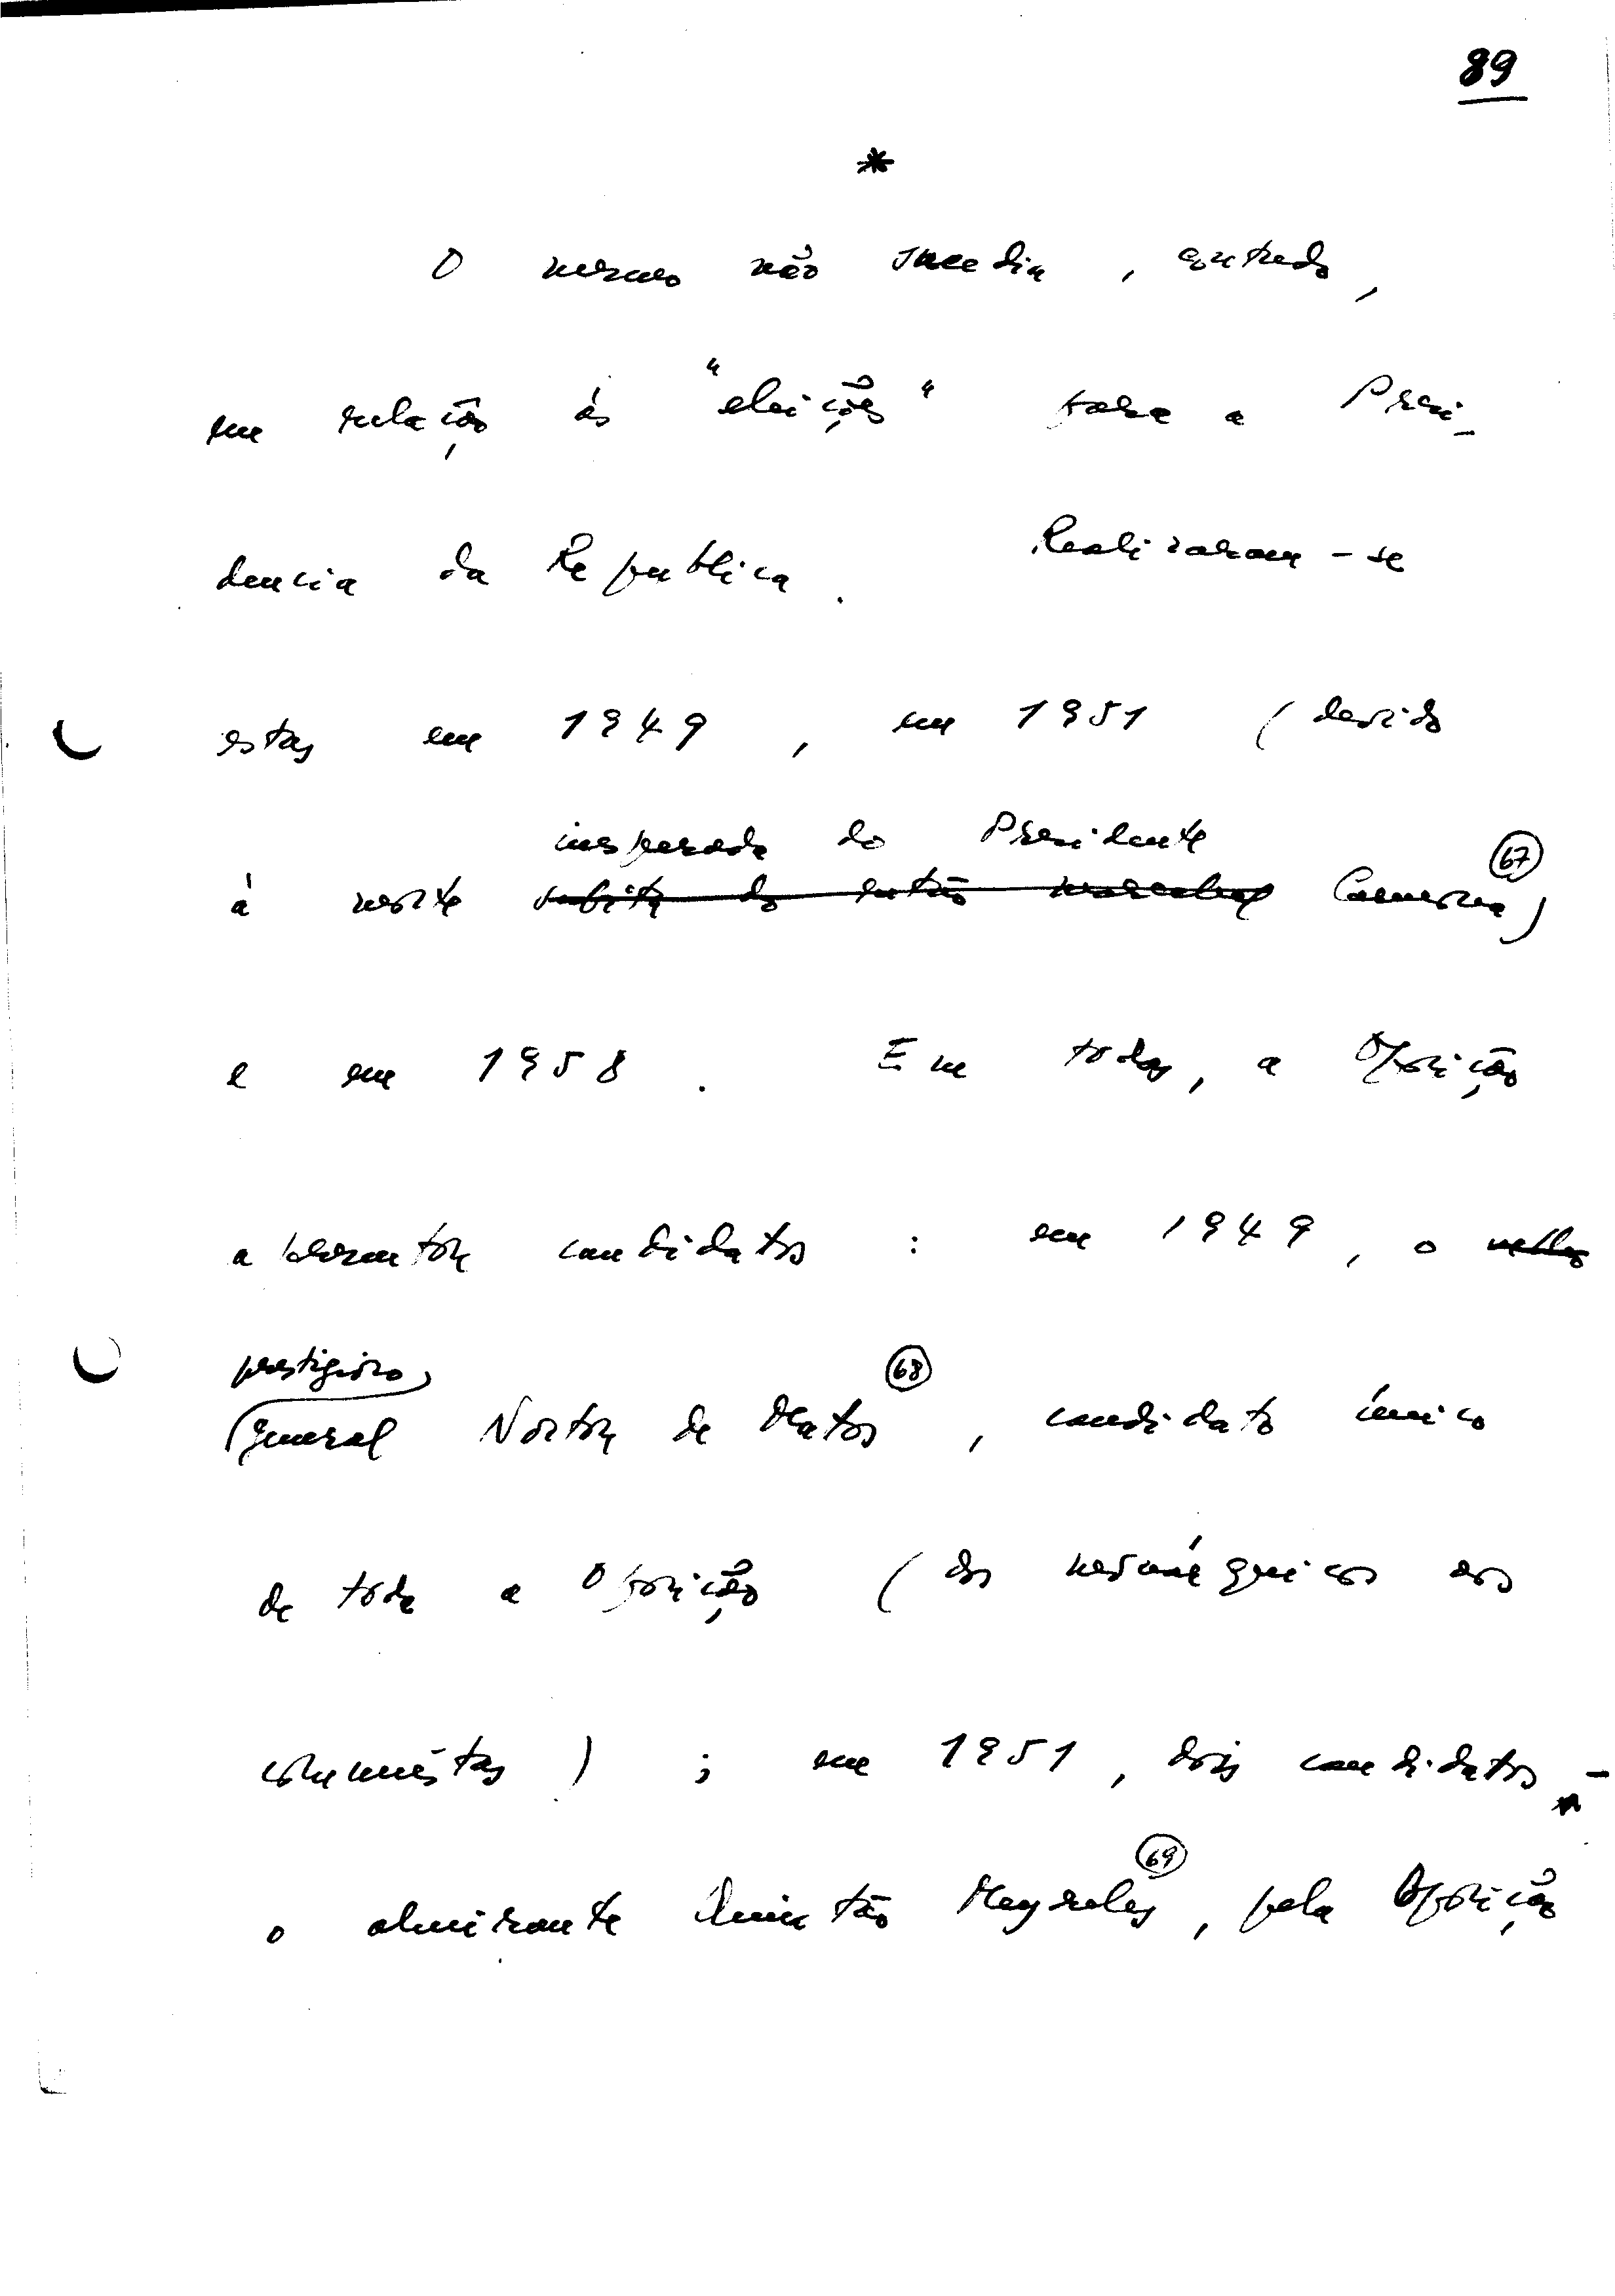 89
*
O mesmo não sucedia, contudo,
em relação às "eleições" para a Presi-
dencia da Republica. Realizaram-se
estas em 1949, em 1951 (devido
inesperada do Presidente
à morte subita do então marechal Carmona (67))
e em 1958. Em todas, a Oposição
apresentou candidatos: em 1949, o velho
prestigioso
general Norton de Matos (68), candidato único
de toda a Oposição (dos monárquicos aos
comunistas); em 1951, dois candidatos, -
o almirante Quintão Meyreles (69), pela Oposição